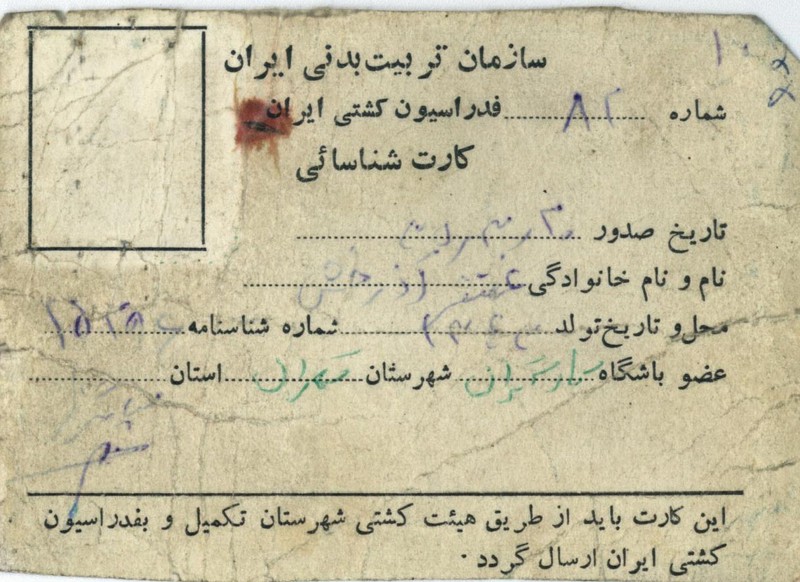 سازمان تربیت بدنی ایران
شماره ۸۲ فدراسیون کشتی ایران
کارت شناسائی
تاریخ صدور
نام و نام خانوادگی
محل و تاریخ تولد شماره شناسنامه
عضو باشگاه کارگران شهرستان تهران استان
این کارت باید از طریق هیئت کشتی شهرستان تکمیل و بفدراسیون
کشتی ایران ارسال گردد .